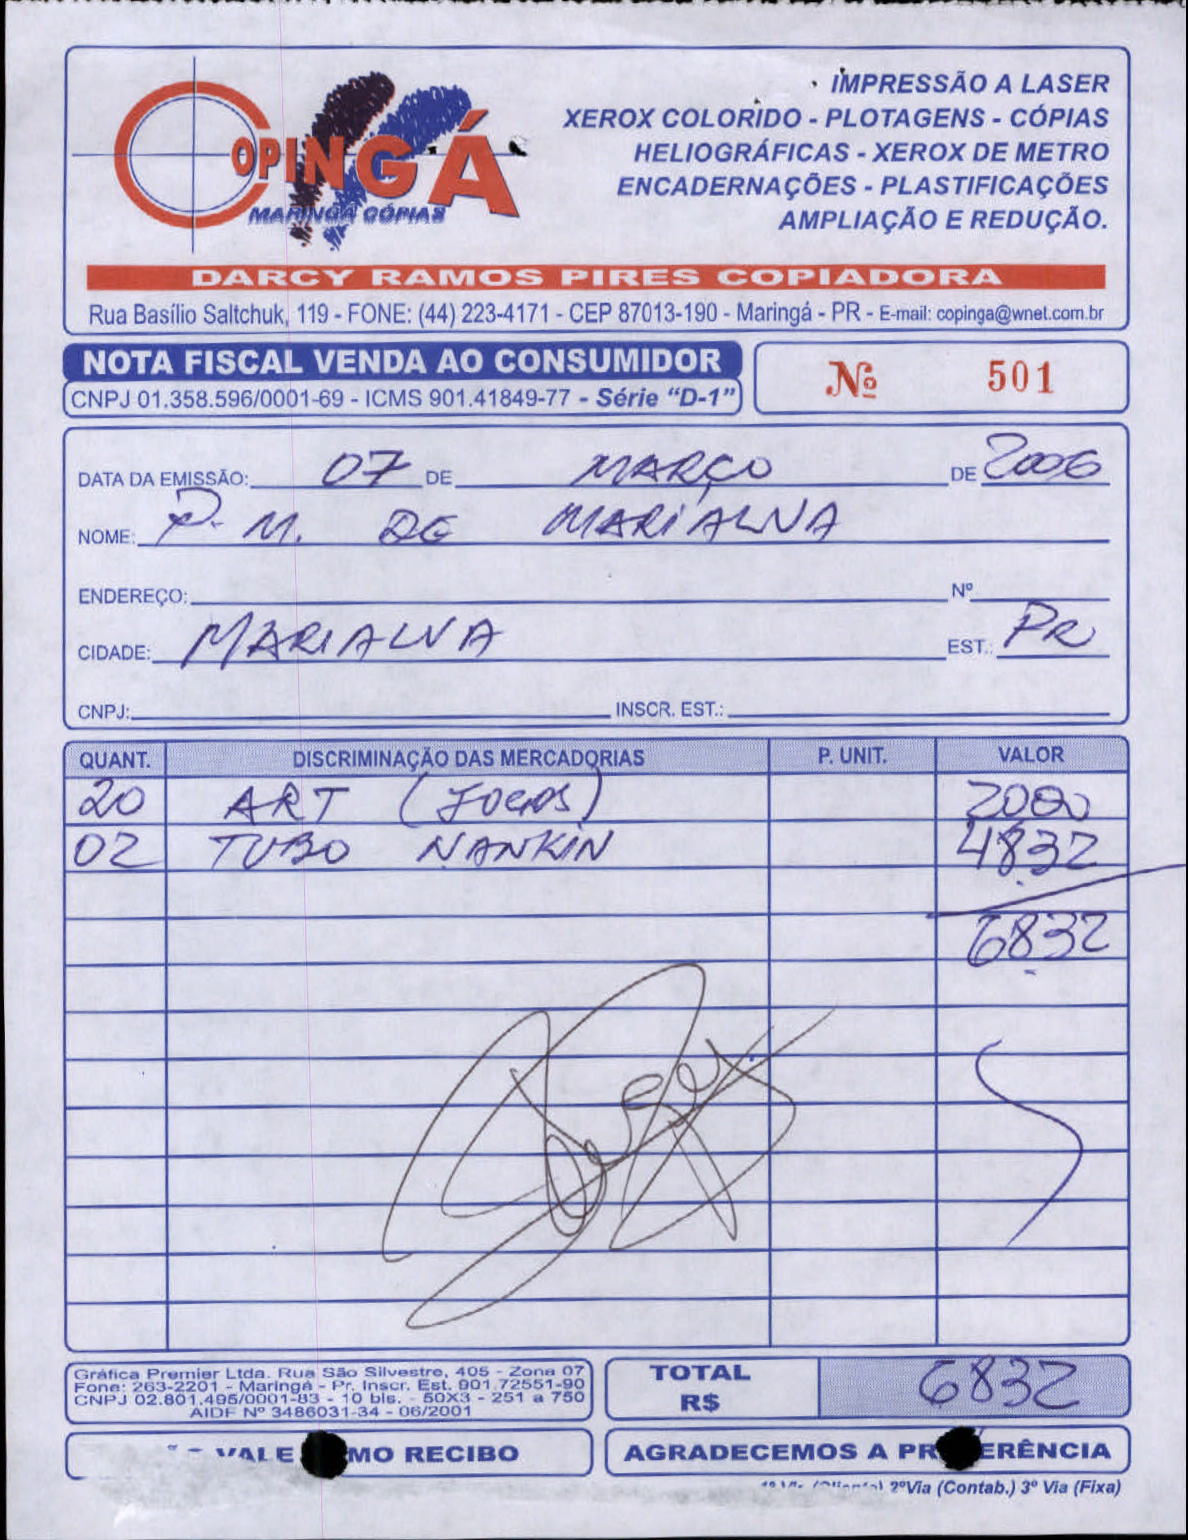 COPINGÁ
MARINGÁ CÓPIAS
IMPRESSÃO A LASER
XEROX COLORIDO - PLOTAGENS - CÓPIAS
HELIOGRÁFICAS - XEROX DE METRO
ENCADERNAÇÕES - PLASTIFICAÇÕES
AMPLIAÇÃO E REDUÇÃO.
DARCY RAMOS PIRES COPIADORA
Rua Basílio Saltchuk, 119 - FONE: (44) 223-4171 - CEP 87013-190 - Maringá - PR - E-mail: copinga@wnet.com.br
NOTA FISCAL VENDA AO CONSUMIDOR
CNPJ 01.358.596/0001-69 - ICMS 901.41849-77 - Série "D-1"
Nº 501
DATA DA EMISSÃO: 07 DE MARÇO DE 2006
NOME: P. M. DE MARIALVA
ENDEREÇO: Nº
CIDADE: MARIALVA EST.: PR
CNPJ: INSCR. EST.:
QUANT. DISCRIMINAÇÃO DAS MERCADORIAS P. UNIT. VALOR
20 ART 2000
02 TUBO NANKIN 4832
6832
Gráfica Premier Ltda. Rua São Silvestre, 405 - Zona 07
Fone: 263-2201 - Maringá - Pr. Inscr. Est. 901.72551-90
CNPJ 02.801.495/0001-83 - 10 bls. - 50X3 - 251 a 750
AIDF Nº 3486031-34 - 06/2001
TOTAL R$ 6832
VALE MO RECIBO
AGRADECEMOS A PR ERÊNCIA
2ºVia (Contab.) 3º Via (Fixa)